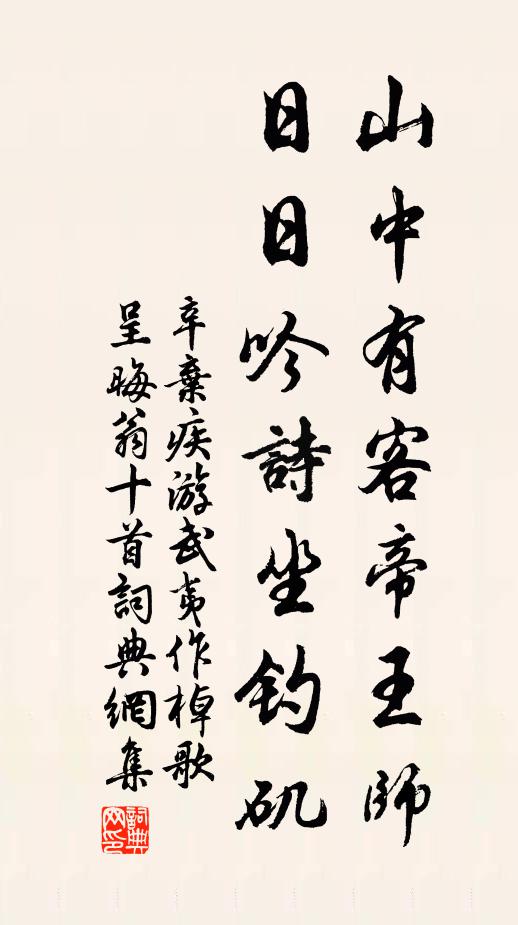 山中有客帝王師
日日吟詩坐釣矶
辛棄疾游武夷作棹歌
呈晦翁十首詞典網集
詞典
网印